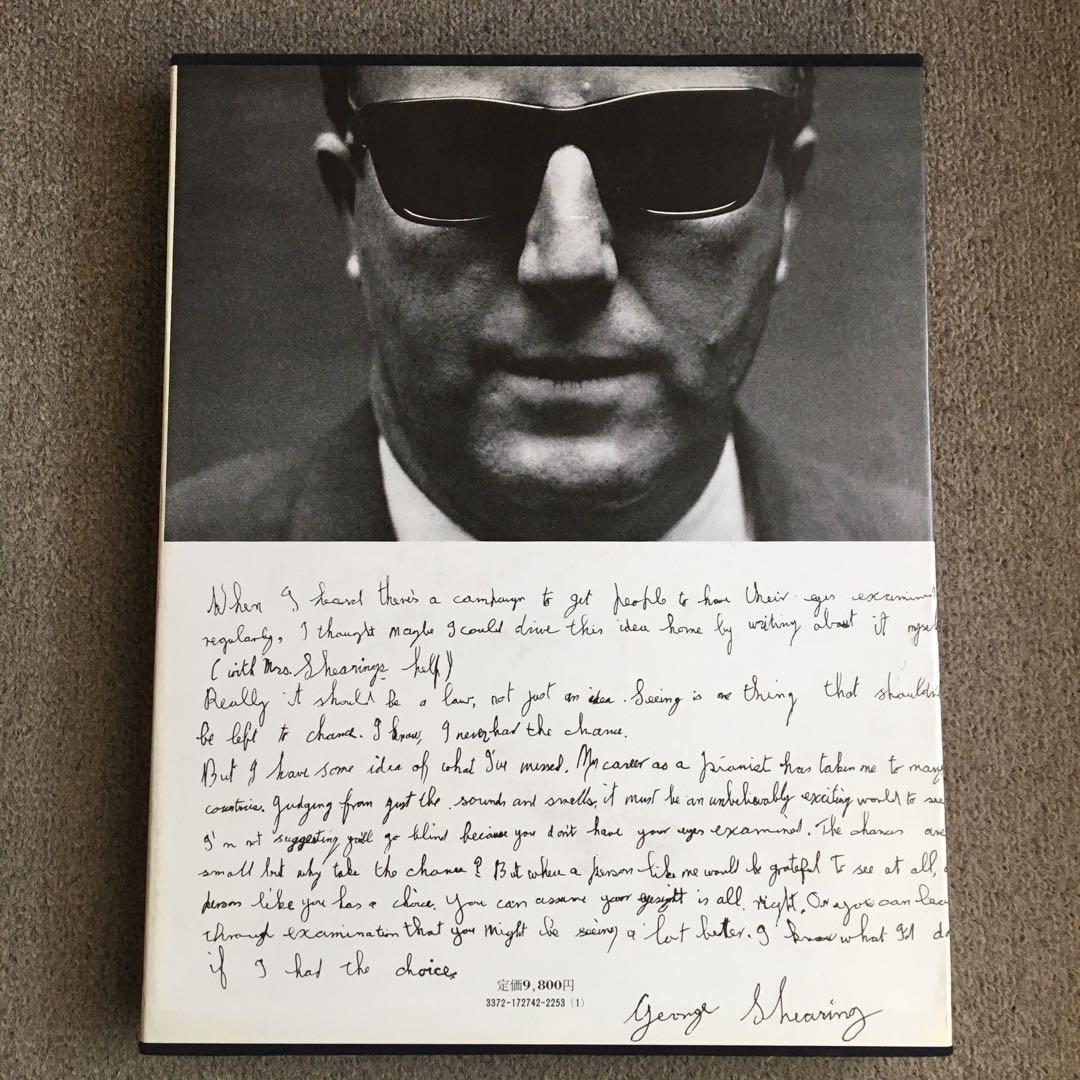 When I heard there's a campaign to get people to have their eyes examined
regularly, I thought maybe I could drive this idea home by writing about it myse
(with Mrs. Shearings help)
Really it should be a law, not just an idea. Seeing is one thing that shouldn
be left to chance. I know, I never had the chance.
But I have some idea of what I've missed. My career as a pianist has taken me to many
countries. Judging from just the sounds and smells, it must be an unbelievably exciting world to see
I'm not suggesting you'll go blind because you don't have your eyes examined. The chances are
small but why take the chance? But when a person like me would be grateful to see at all,
person like you has a choice. You can assume your eyesight is all right. Or you can lea
through examination that you might be seeing a lot better. I know what I'd do
if I had the choice.
定価9,800円
3372-172742-2253 (1)
George Shearing